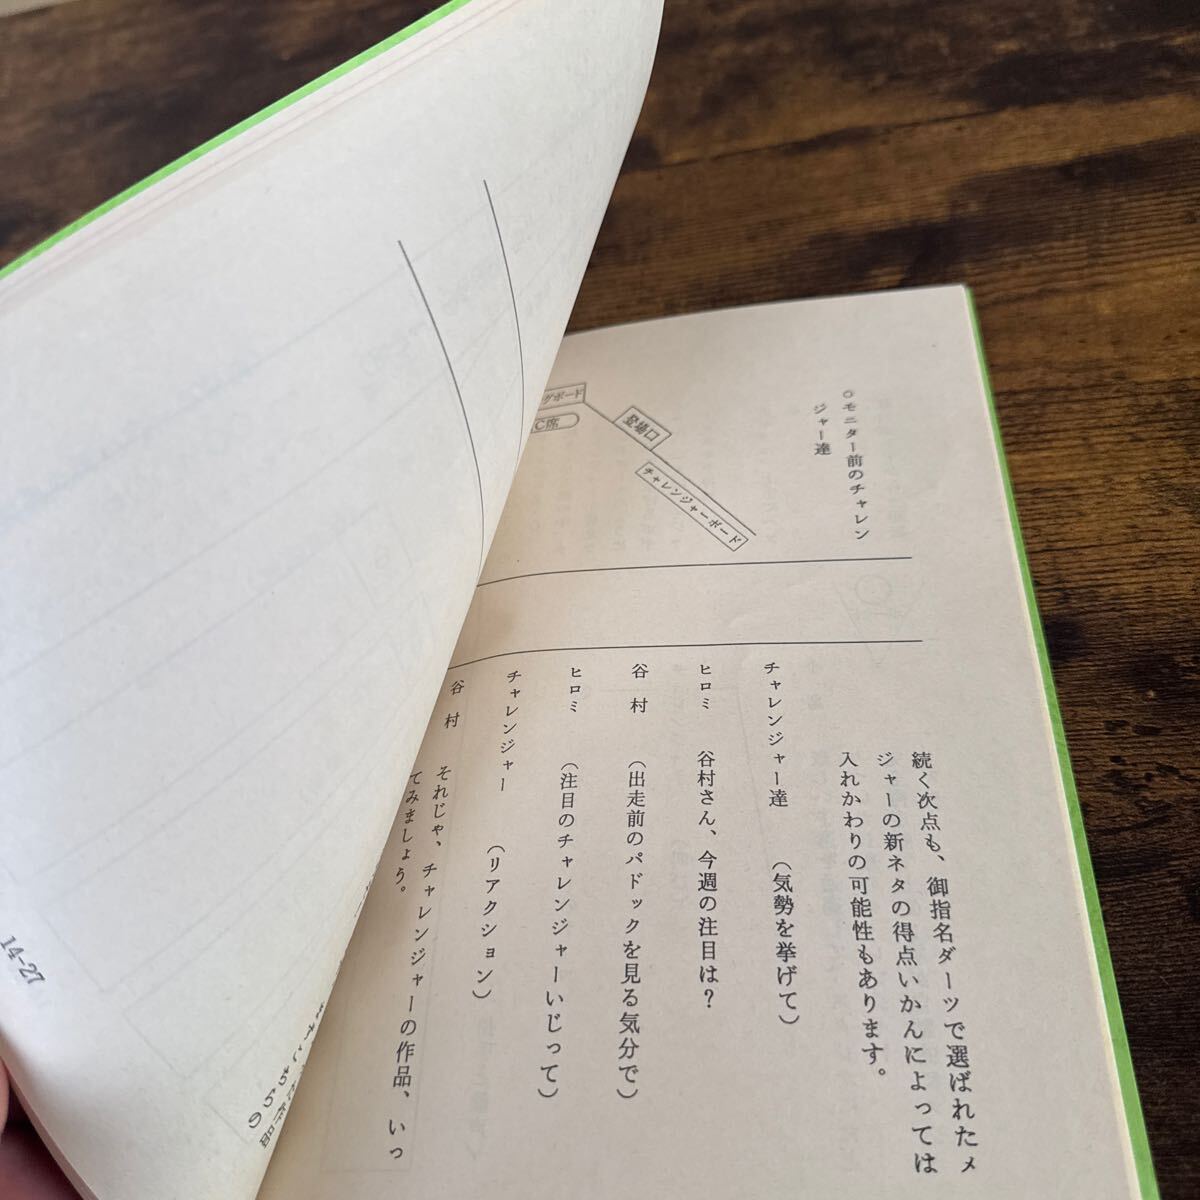 ○モニター前のチャレン
ジャー達
グボード
C席
登場口
チャレンジャーボード
続く次点も、御指名ダーツで選ばれたメ
ジャーの新ネタの得点いかんによっては
入れかわりの可能性もあります。
チャレンジャー達　(気勢を挙げて)
ヒロミ　谷村さん、今週の注目は?
谷　村　(出走前のパドックを見る気分で)
ヒロミ　(注目のチャレンジャーいじって)
チャレンジャー　(リアクション)
谷　村　それじゃ、チャレンジャーの作品、いっ
てみましょう。
14-27